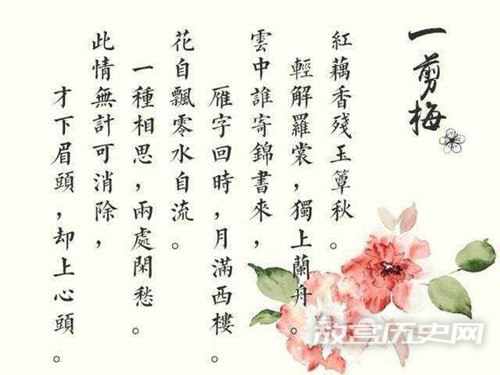 一剪梅
紅藕香殘玉簟秋。
輕解羅裳，獨上蘭舟。
雲中誰寄錦書來，
雁字回時，月滿西樓。
花自飄零水自流。
一種相思，兩處閑愁。
此情無計可消除，
才下眉頭，却上心頭。
故宫历史网